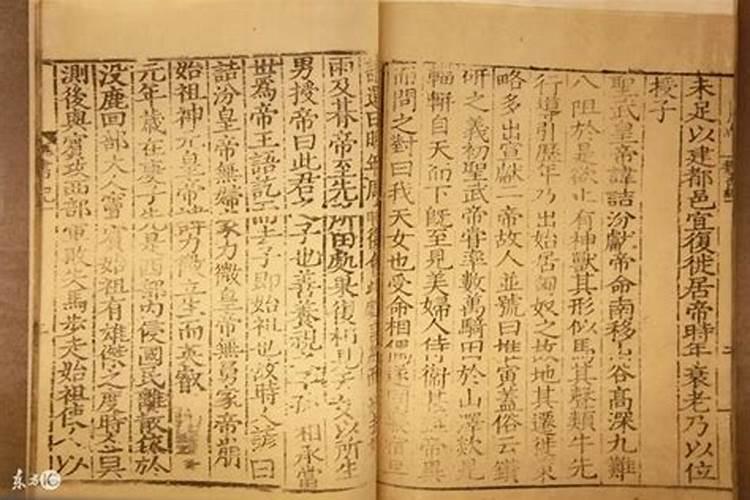 未足以建都邑宜復徙居帝時年衰老乃以位
授子
聖武皇帝諱詰汾獻帝命南移山谷高深九難
八阻於是欲止有神獸其形似馬其聲類牛先
行導引歷年乃出始居匈奴之故地其遷徙策
略多出宣獻二帝故人並號曰推寅蓋俗云鑽
研之義初聖武帝嘗率數萬騎田於山澤欻見
輜軿自天而下既至見美婦人侍衞甚 帝異
而問之對曰我天女也受命相偶
請還曰 年周時復
而及朞帝至先所田處果復相見 以所生
男授帝曰此君之子也善養視之子孫相承當
世爲帝王語訖而去子即始祖也故時人諺曰
詰汾皇帝無婦家力微皇帝無舅家帝崩
始祖神元皇帝諱力微立生而英叡
元年歲在庚子先是西部內侵國民離散依於
没鹿回部大人竇賓始祖有雄傑之度時人莫
測後與賓攻西部軍敗失馬步走始祖使人以
东方IC